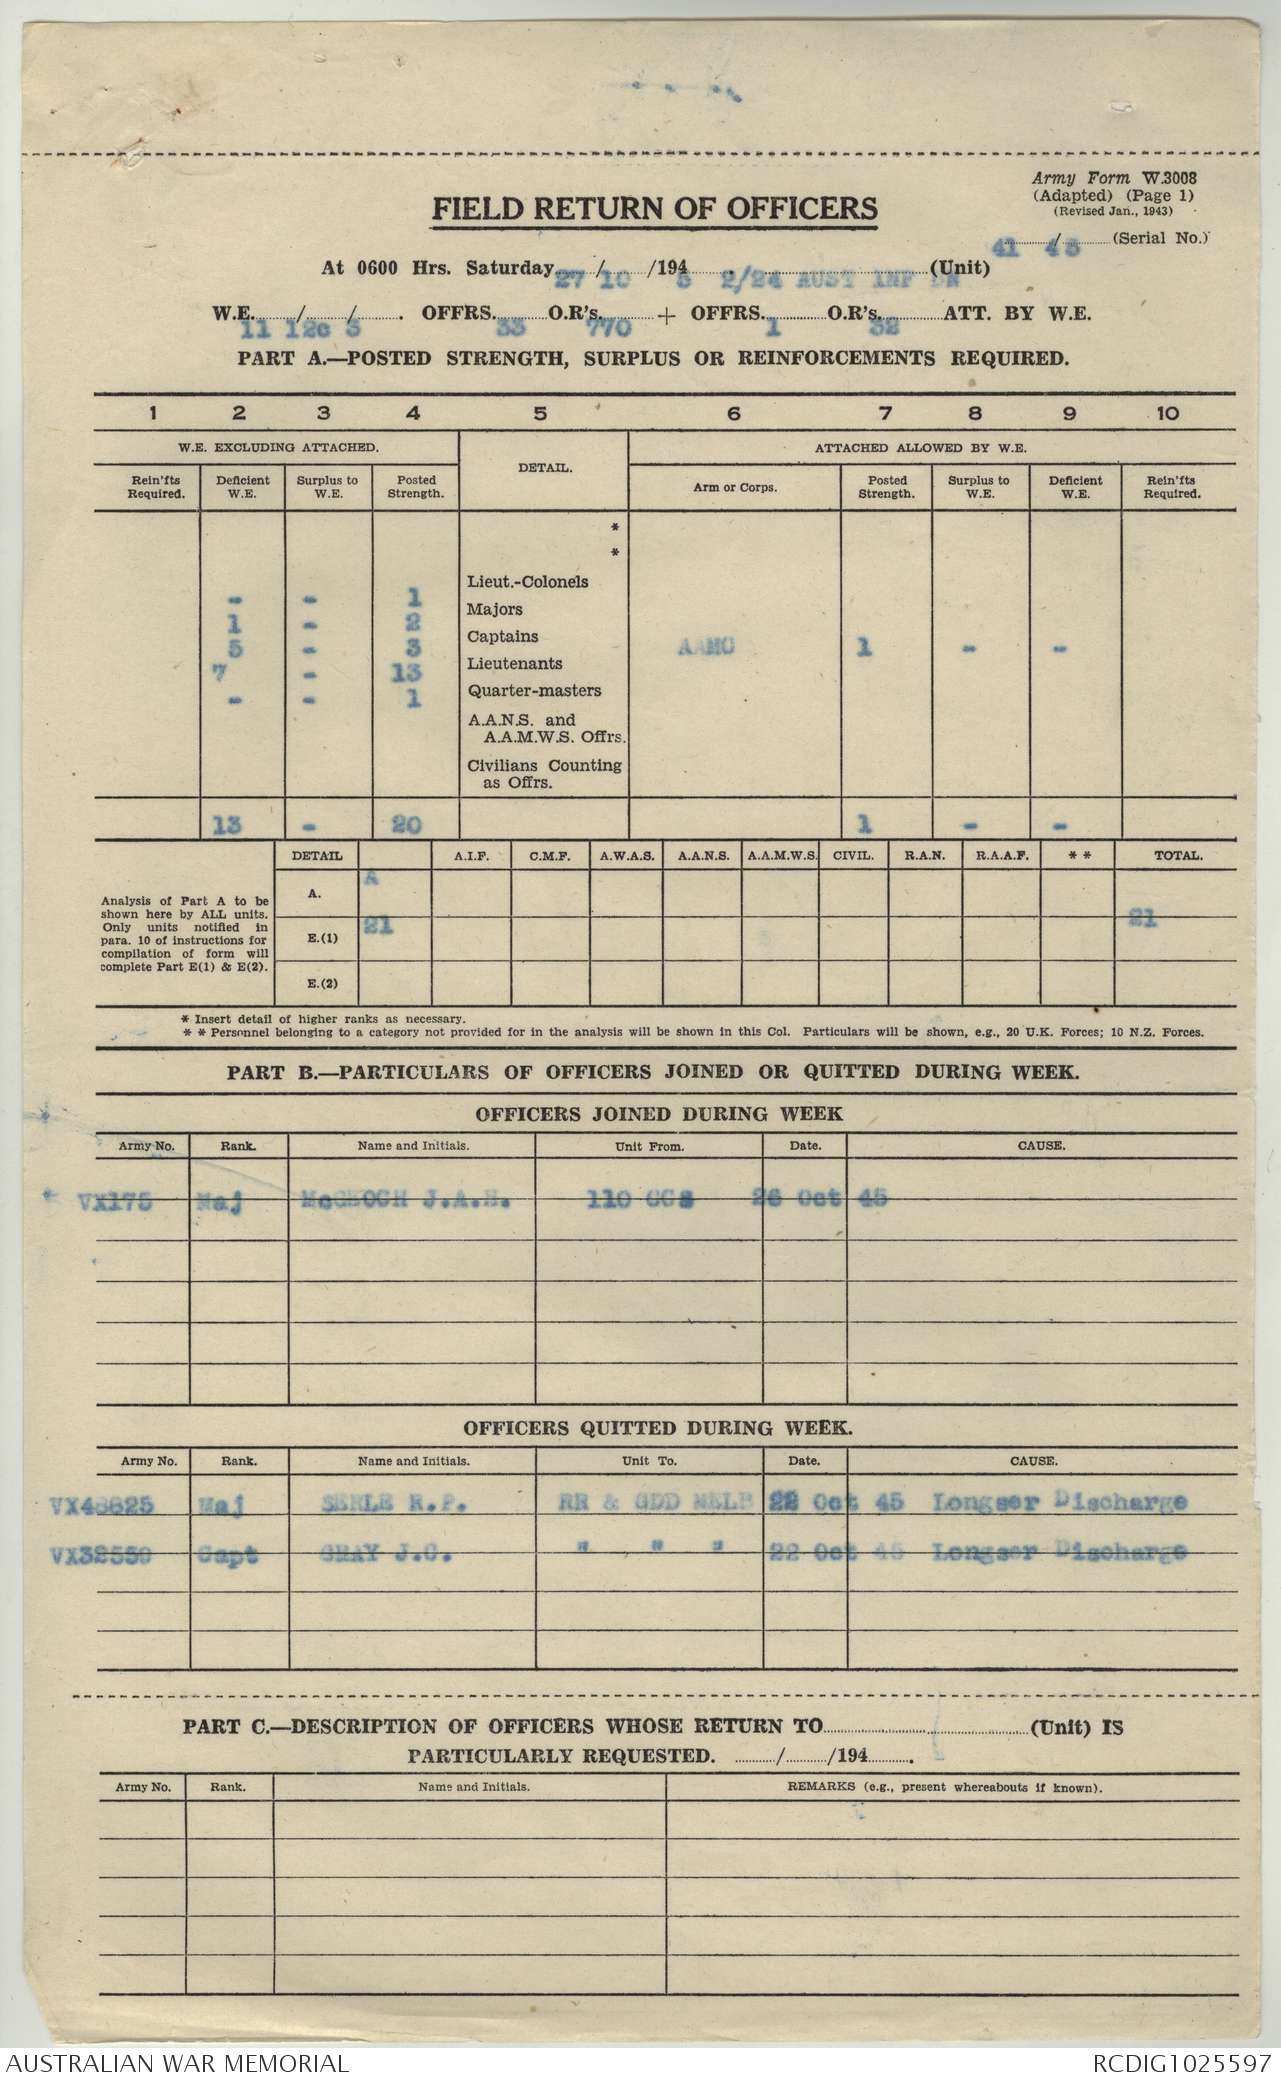 Army Form W.3008
(Adapted) (Page 1)
(Revised Jan., 1943)
41 / 45 (Serial No.)
FIELD RETURN OF OFFICERS
At 0600 Hrs. Saturday 27 / 10 /194 5. 2/24 AUST INF BN (Unit)
W.E. 11 / 12c / 3 . OFFRS. 33 O.R's. 770 + OFFRS. 1 O.R's. 32 ATT. BY W.E.
PART A.—POSTED STRENGTH, SURPLUS OR REINFORCEMENTS REQUIRED.
1 2 3 4 5 6 7 8 9 10
W.E. EXCLUDING ATTACHED. DETAIL. ATTACHED ALLOWED BY W.E.
Rein'fts Required. Deficient W.E. Surplus to W.E. Posted Strength. Arm or Corps. Posted Strength. Surplus to W.E. Deficient W.E. Rein'fts Required.
*
*
- - 1 Lieut.-Colonels
1 - 2 Majors
5 - 3 Captains AAMC 1 - -
7 - 13 Lieutenants
- - 1 Quarter-masters
A.A.N.S. and
A.A.M.W.S. Offrs.
Civilians Counting
as Offrs.
13 - 20 1 - -
DETAIL A.I.F. C.M.F. A.W.A.S. A.A.N.S. A.A.M.W.S. CIVIL. R.A.N. R.A.A.F. * * TOTAL.
Analysis of Part A to be
shown here by ALL units.
Only units notified in
para. 10 of instructions for
compilation of form will
complete Part E(1) & E(2).
A. A
E.(1) 21 21
E.(2)
* Insert detail of higher ranks as necessary.
* * Personnel belonging to a category not provided for in the analysis will be shown in this Col. Particulars will be shown, e.g., 20 U.K. Forces; 10 N.Z. Forces.
PART B.—PARTICULARS OF OFFICERS JOINED OR QUITTED DURING WEEK.
OFFICERS JOINED DURING WEEK
Army No. Rank. Name and Initials. Unit From. Date. CAUSE.
VX175 Maj McGEOCH J.A.H. 110 CCS 26 Oct 45
OFFICERS QUITTED DURING WEEK.
Army No. Rank. Name and Initials. Unit To. Date. CAUSE.
VX48625 Maj SERLE R.P. RR & GDD MELB 22 Oct 45 Longser Discharge
VX32550 Capt GRAY J.C. " " " 22 Oct 45 Longser Discharge
PART C.—DESCRIPTION OF OFFICERS WHOSE RETURN TO (Unit) IS
PARTICULARLY REQUESTED. / /194 .
Army No. Rank. Name and Initials. REMARKS (e.g., present whereabouts if known).
AUSTRALIAN WAR MEMORIAL
RCDIG1025597